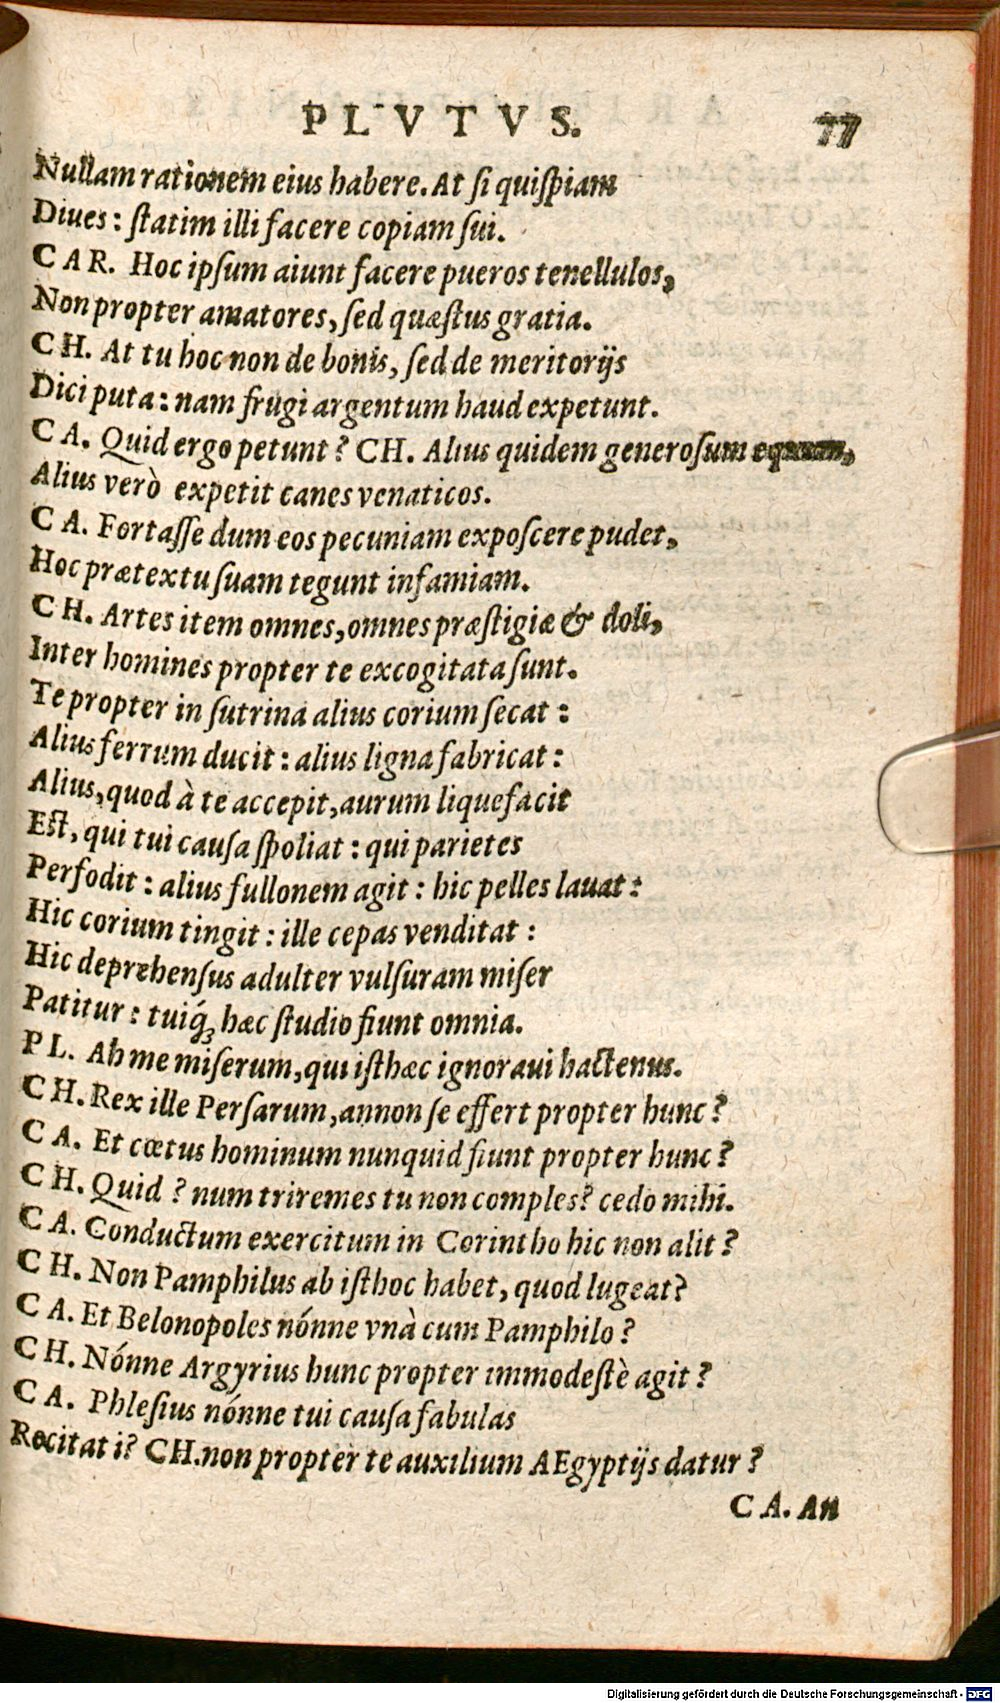 PLVTVS. 77
Nullam rationem eius habere. At ſi quiſpiam
Diues: ſtatim illi facere copiam ſui.
CAR. Hoc ipſum aiunt facere pueros tenellulos,
Non propter amatores, ſed quæſtus gratia.
CH. At tu hoc non de bonis, ſed de meritorijs
Dici puta: nam frugi argentum haud expetunt.
CA. Quid ergo petunt? CH. Alius quidem generoſum equum,
Alius verò expetit canes venaticos.
CA. Fortaſſe dum eos pecuniam expoſcere pudet,
Hoc prætextu ſuam tegunt infamiam.
CH. Artes item omnes, omnes præſtigiæ & doli,
Inter homines propter te excogitata ſunt.
Te propter in ſutrina alius corium ſecat:
Alius ferrum ducit: alius ligna fabricat:
Alius, quod à te accepit, aurum liquefacit
Eſt, qui tui cauſa ſpoliat: qui parietes
Perfodit: alius fullonem agit: hic pelles lauat:
Hic corium tingit: ille cepas venditat:
Hic deprehenſus adulter vulſuram miſer
Patitur: tuiq́ꝫ hæc ſtudio fiunt omnia.
PL. Ah me miſerum, qui iſthæc ignoraui hactenus.
CH. Rex ille Perſarum, annon ſe effert propter hunc?
CA. Et cœtus hominum nunquid fiunt propter hunc?
CH. Quid? num triremes tu non comples? cedo mihi.
CA. Conductum exercitum in Corintho hic non alit?
CH. Non Pamphilus ab iſthoc habet, quod lugeat?
CA. Et Belonopoles nónne vnà cum Pamphilo?
CH. Nónne Argyrius hunc propter immodeſtè agit?
CA. Phleſius nónne tui cauſa fabulas
Recitat i? CH. non propter te auxilium AEgyptijs datur?
CA. An
Digitalisierung gefördert durch die Deutsche Forschungsgemeinschaft - DFG